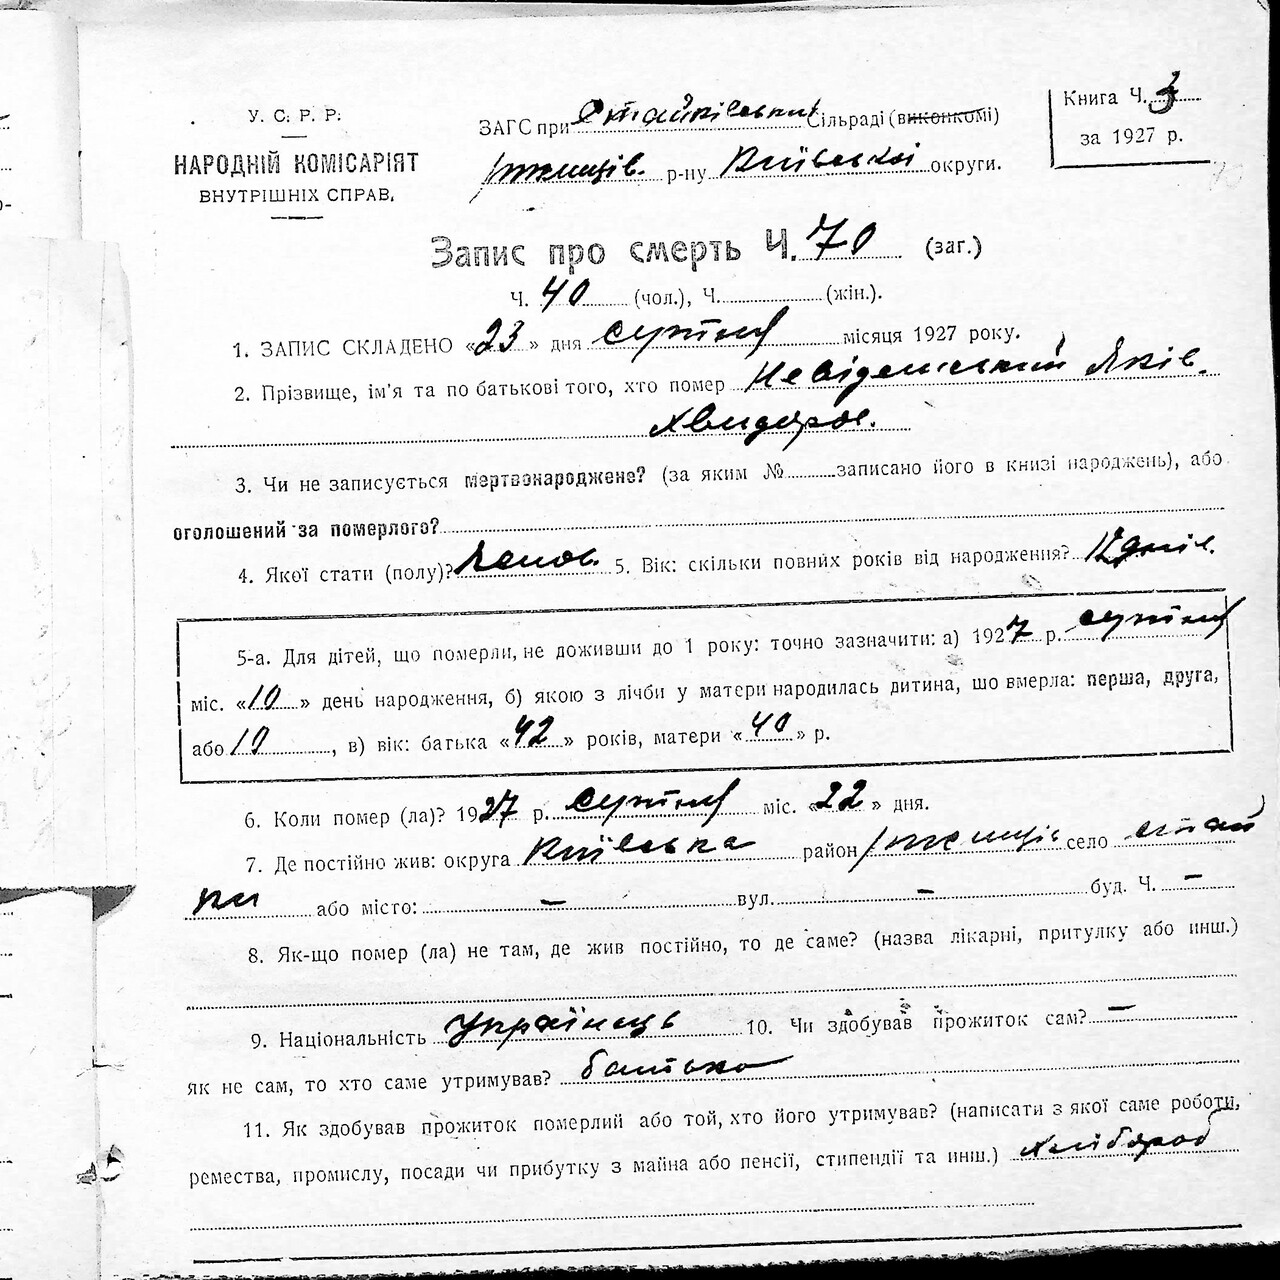 У. С. Р. Р.
НАРОДНІЙ КОМІСАРІЯТ
ВНУТРІШНІХ СПРАВ.
ЗАГС при Стайківський Сільраді (виконкомі)
Ржищів. р-ну Київської округи.
Книга Ч. 3
за 1927 р.
Запис про смерть Ч. 70 (заг.)
Ч. 40 (чол.), Ч. (жін.).
1. ЗАПИС СКЛАДЕНО «23» дня серпня місяця 1927 року.
2. Прізвище, ім'я та по батькові того, хто помер Невідомський Яків.
Хвидоров.
3. Чи не записується мертвонароджене? (за яким № записано його в книзі народжень), або
оголошений за померлого?
4. Якої стати (полу)? 5. Вік: скільки повних років від народження? 12 днів.
5-а. Для дітей, що померли, не доживши до 1 року: точно зазначити: а) 1927 р. серпня
міс. «10» день народження, б) якою з лічби у матери народилась дитина, що вмерла: перша, друга,
або 10, в) вік: батька «42» років, матери «40» р.
6. Коли помер (ла)? 1927 р. серпня міс. «22» дня.
7. Де постійно жив: округа Київська район Ржищів село Стай
ки або місто: — вул. — буд. Ч. —
8. Як-що помер (ла) не там, де жив постійно, то де саме? (назва лікарні, притулку або инш.)
9. Національність Українець 10. Чи здобував прожиток сам? —
як не сам, то хто саме утримував? батько
11. Як здобував прожиток померлий або той, хто його утримував? (написати з якої саме роботи,
ремества, промислу, посади чи прибутку з майна або пенсії, стипендії та инш.) Хлібороб